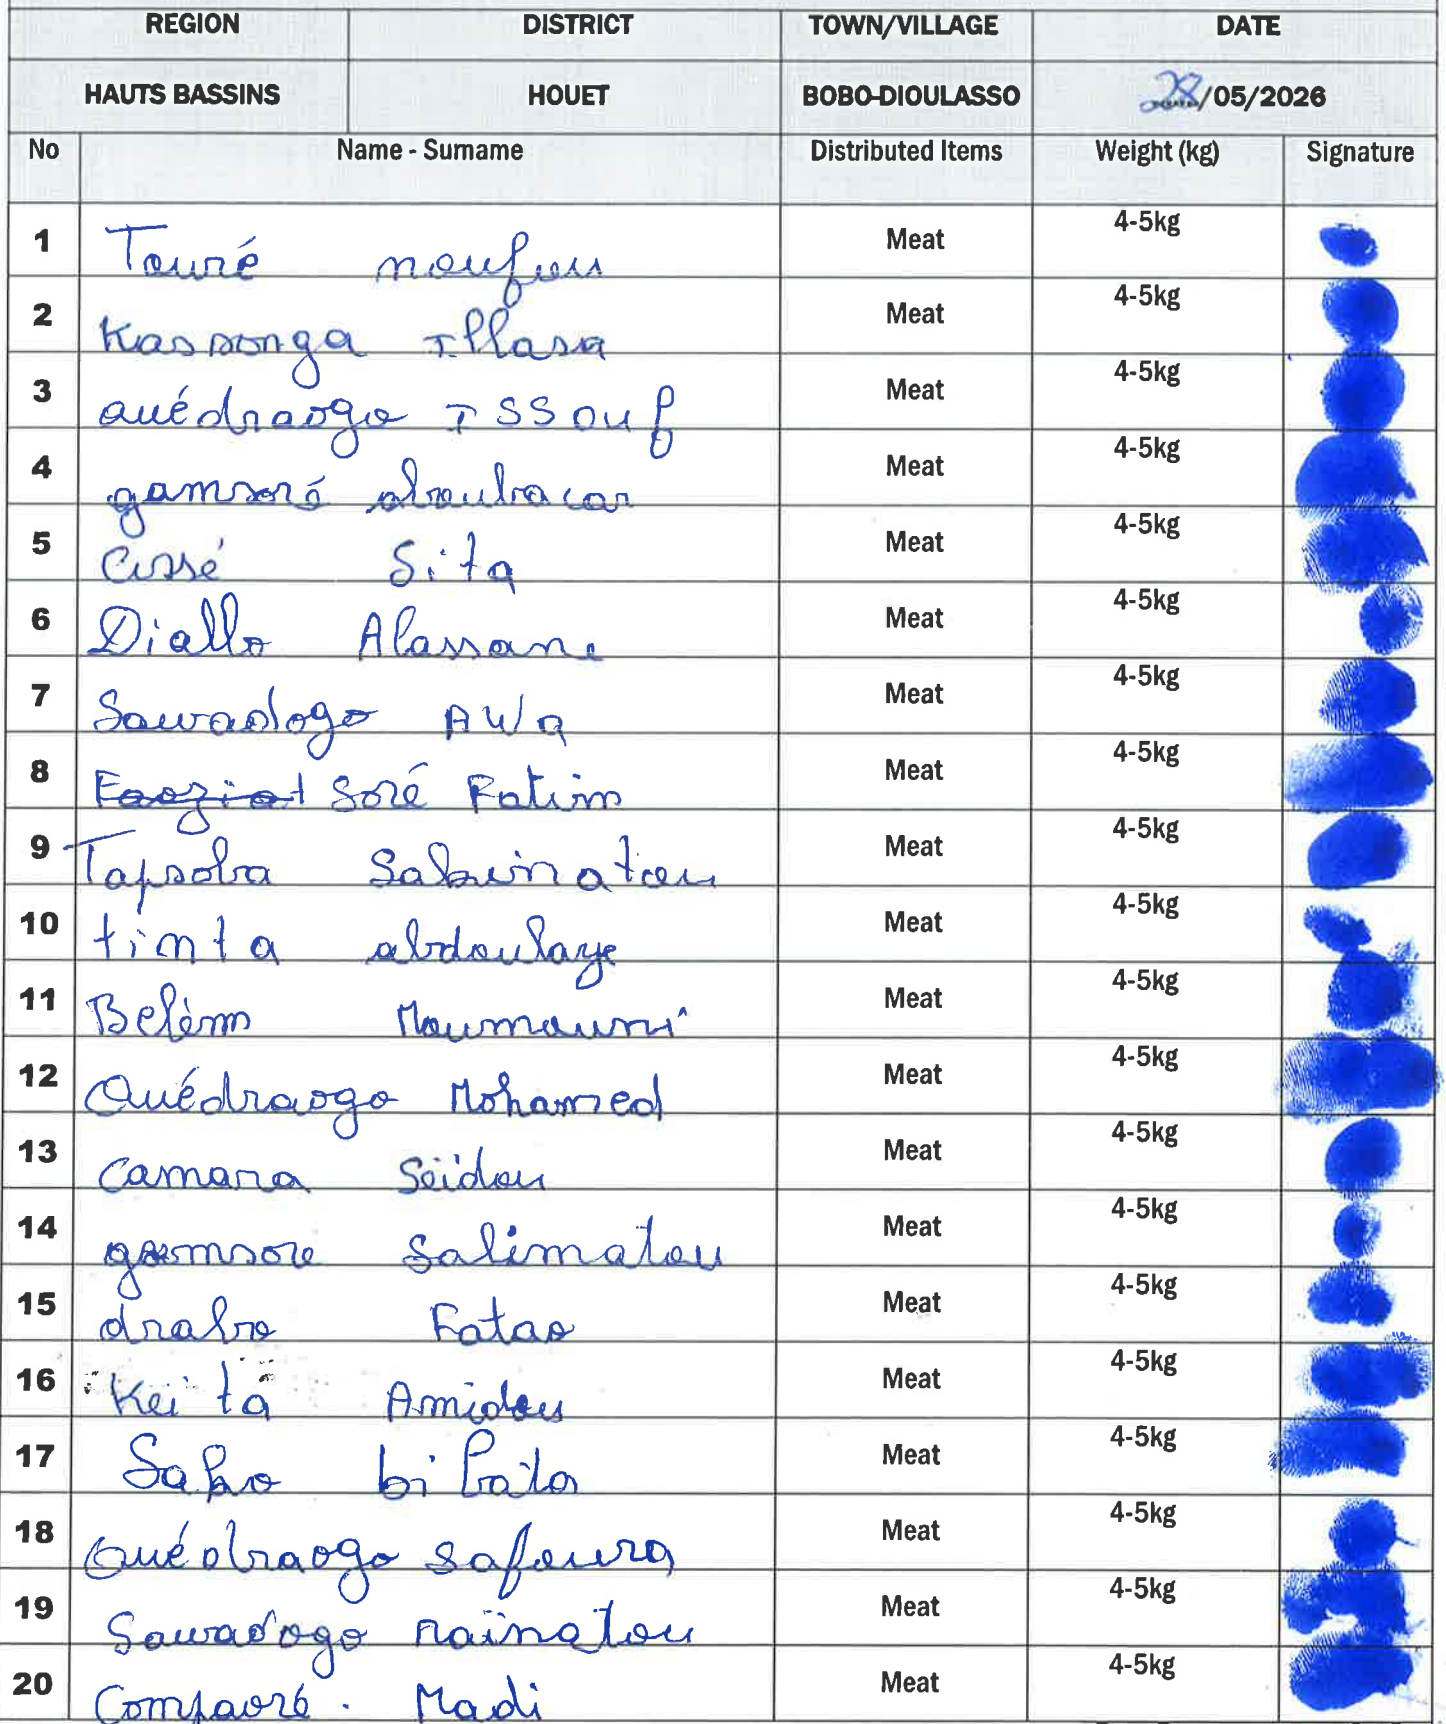 REGION DISTRICT TOWN/VILLAGE DATE
HAUTS BASSINS HOUET BOBO-DIOULASSO 28/05/2026
No Name - Surname Distributed Items Weight (kg) Signature
1 Touré noufou Meat 4-5kg
2 Kassonga Illasa Meat 4-5kg
3 ouédraogo ISSouf Meat 4-5kg
4 gamsoré aboubacar Meat 4-5kg
5 Cissé Sita Meat 4-5kg
6 Diallo Alassane Meat 4-5kg
7 Sawadogo AWa Meat 4-5kg
8 Faoziat Soré Fatim Meat 4-5kg
9 Tapsoba Meat 4-5kg
10 tinta abdoulaye Meat 4-5kg
11 Belèm Moumouni Meat 4-5kg
12 Ouédraogo Mohamed Meat 4-5kg
13 Camara Seïdou Meat 4-5kg
14 gamsore Salimatou Meat 4-5kg
15 drabo Fatao Meat 4-5kg
16 Keita Amidou Meat 4-5kg
17 Meat 4-5kg
18 Ouédraogo Safoura Meat 4-5kg
19 Sawadogo raïnatou Meat 4-5kg
20 Compaoré. Madi Meat 4-5kg